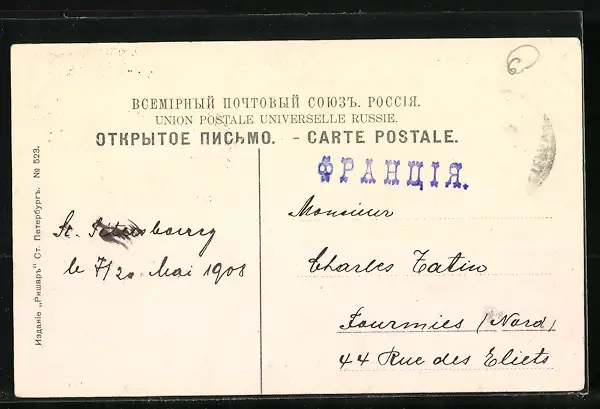 6
ВСЕМІРНЫЙ ПОЧТОВЫЙ СОЮЗЪ. РОССІЯ.
UNION POSTALE UNIVERSELLE RUSSIE.
ОТКРЫТОЕ ПИСЬМО. - CARTE POSTALE.
ФРАНЦІЯ.
Изданіе „Ришаръ" Ст. Петербургъ. № 523.
St. Pétersbourg
le 7/20 Mai 1908
Monsieur
Charles Tatin
Fourmies (Nord)
44 Rue des Eliets